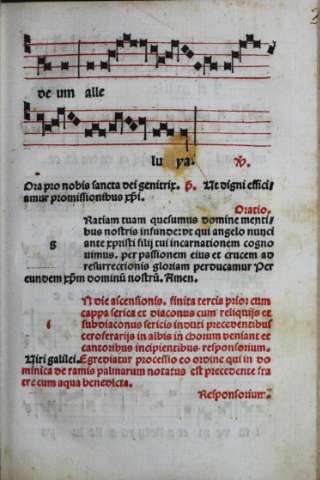 de um alle
lu ya. ℣.
Ora pro nobis sancta dei genitrix. ℟. Ut digni effici
amur promissionibus xpi.
Oratio.
g Ratiam tuam quesumus domine menti
bus nostris infunde: vt qui angelo nunci
ante xpristi filij tui incarnationem cogno
uimus. per passionem eius et crucem ad
resurrectionis gloriam perducamur Per
eundem xpm dominū nostrū. Amen.
i N die ascensionis. finita tercia prior cum
cappa serica et diaconus cum reliquijs et
subdiaconus sericis induti precedentibus
ceroferarijs in albis in chorum veniant et
cantoribus incipientibus responsorium.
Viri galilei. Egrediatur processio eo ordine qui in do
minica de ramis palmarum notatus est precedente fra
tre cum aqua benedicta.
Responsorium.